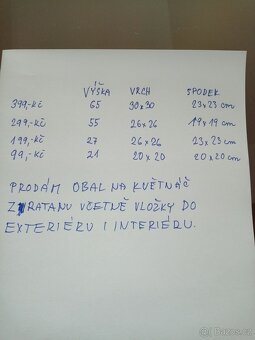 VÝŠKA VRCH SPODEK
399,-KČ 65 30x30 23x23 cm
299,-KČ 55 26x26 19x19 cm
199,-KČ 27 26x26 23x23 cm
99,-KČ 21 20x20 20x20 cm
PRODÁM OBAL NA KVĚTNÁČ
Z RATANU VČETNĚ VLOŽKY DO
EXTERIÉRU I INTERIÉRU.
Bazos.cz